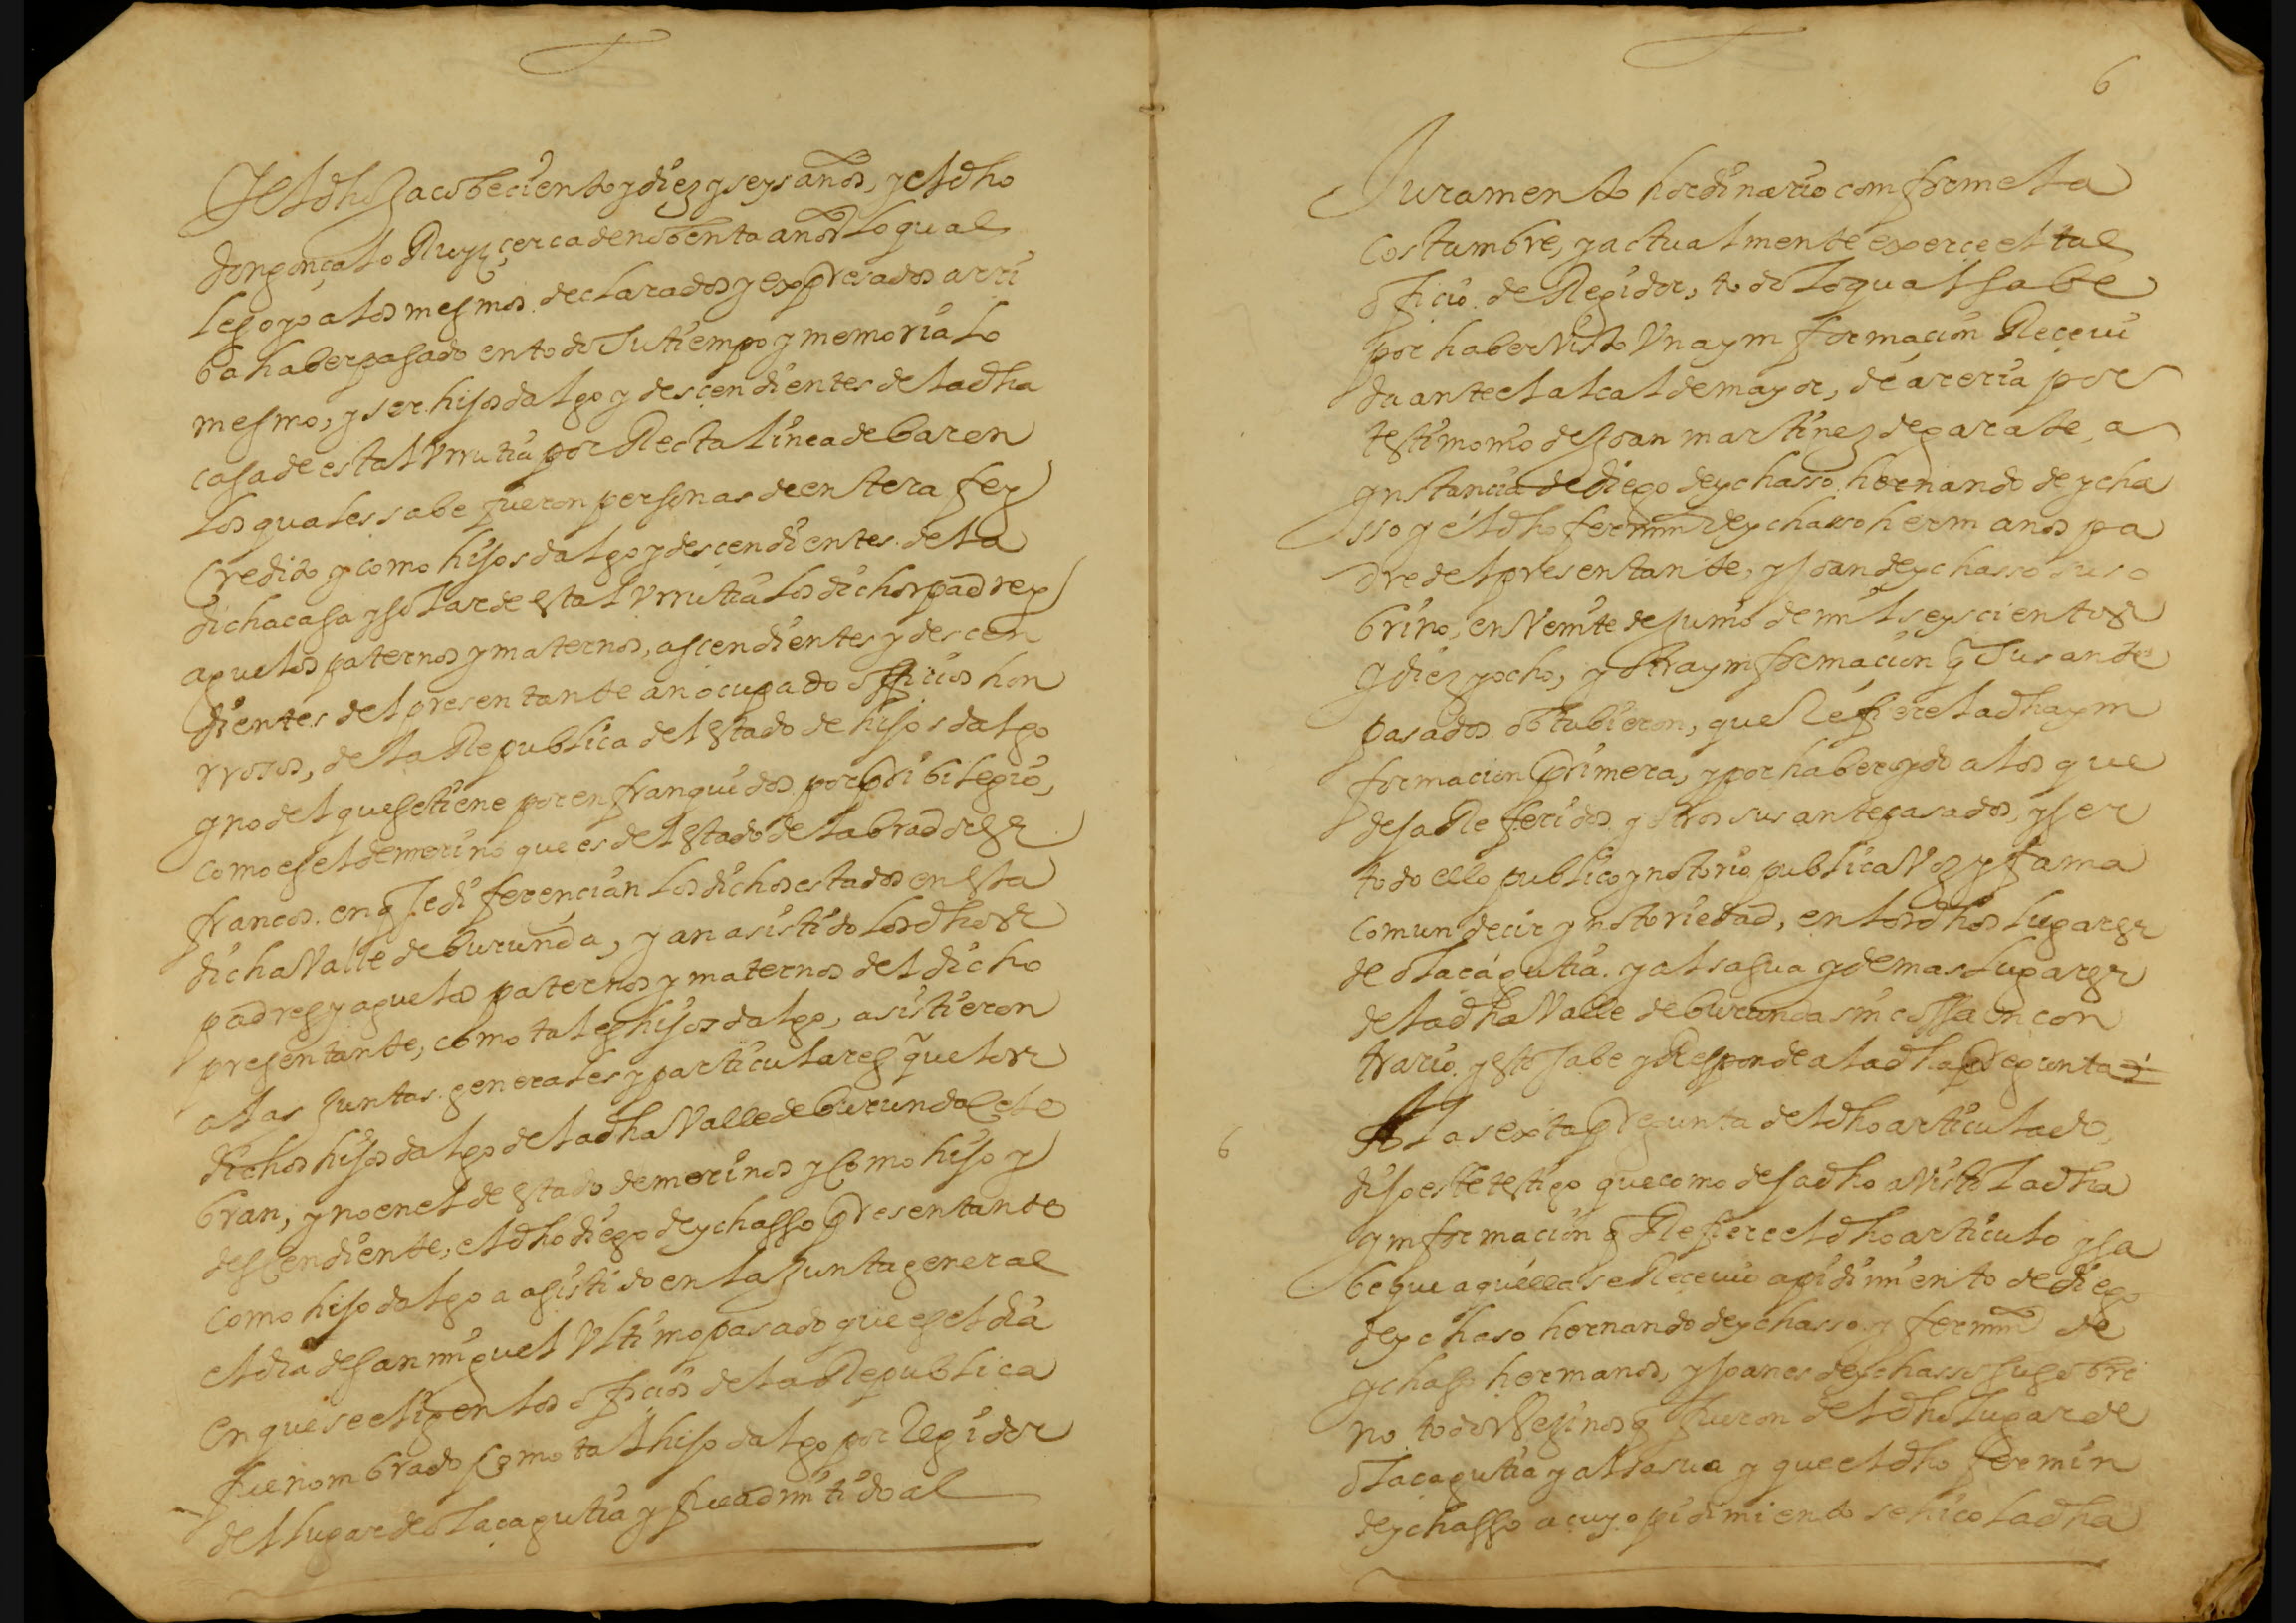 Y el dho Jacobe ciento y diez y seys años, y el dho
don gonçalo Ruyz cerca de nobenta años Lo qual
les oyo a los mesmos declarados y expresados arri
ba haber pasado en todo su tiempo y memoria lo
mesmo, y ser hijos dalgo y descendientes de la dha
casa de estal Vrrutia por Recta linea de baron
los quales sabe fueron personas de entera fey
credito y como hijos dalgo y descendientes de la
dicha casa y solar de estal Vrrutia los dichos padres
aguelos paternos y maternos, ascendientes y descen
dientes del presentante an ocupado officios hon
rrosos, de la Republica del estado de hijos dalgo
y no del que se tiene por enfranquidos por pribilegio,
como es el de merino que es del estado de labradores
francos en q se diferencian los dichos estados en esta
dicha Valle de burunda, y an asistido los dhos
padres y aguelos paternos y maternos del dicho
presentante, como tales hijos dalgo, asistieron
a las Juntas generales y particulares que los
dichos hijos dalgo de la dha Valle de burunda cele
bran, y no en el de estado de merinos y como hijo y
descendiente, el dho diego de ychasso presentante
como hijo dalgo a asistido en la Junta general
el dia de san miguel Vltimo pasado que es el dia
en que se eligen los officios de la Republica
fue nombrado como tal hijo dalgo por Regidor
del lugar de olaçagutia y fue admitido al
6
Juramento hordinario comforme la
costumbre, y actualmente exerce el tal
officio de Regidor, todo lo qual sabe
por haber visto Vna ymformacion Receui
da ante el alcalde mayor, de areria por
testimonio de Joan martinez de garate, a
ynstancia de diego de ychasso, hernando de ycha
sso y el dho fermin de ychasso hermanos pa
dre del presentante, y Joan de ychasso su so
brino, en Veinte de Junio de mil seyscientos
y diez y ocho, y otra ymformacion q sus ante
pasados obtubieron, que Refiere la dha ym
formacion primera, y por haber oydo a los que
desa Referidos y otros sus antepasados, y ser
todo ello publico y notorio publica Voz y fama
comun decir y notoriedad, en los dhos lugares
de olaçagutia y alsasua y demas lugares
de la dha Valle de burunda sin cossa en con
trario y esto sabe y Responde a la dha Pregunta
6 A la sexta Pregunta del dho articulado,
dijo este testigo que como desa dho a Visto la dha
ymformacion q Refiere el dho articulo y sa
be que aquella se Receuio a pidimiento de diego
de ychaso hernando de ychasso y fermin de
ychasso hermanos, y Joanes de ychasso su sobri
no todos Vesinos q fueron del dho lugar de
olaçagutia y alsasua y que el dho fermin
de ychasso a cuyo pidimiento se hiço la dha